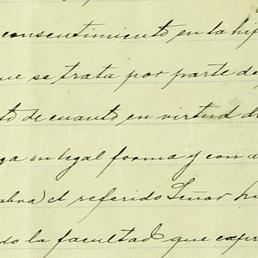 consentimiento en la hip
que se trata por parte de
to de cuanto en virtud d
ga en legal forma y con a
alva) el referido Señor hi
do la facultad que expr